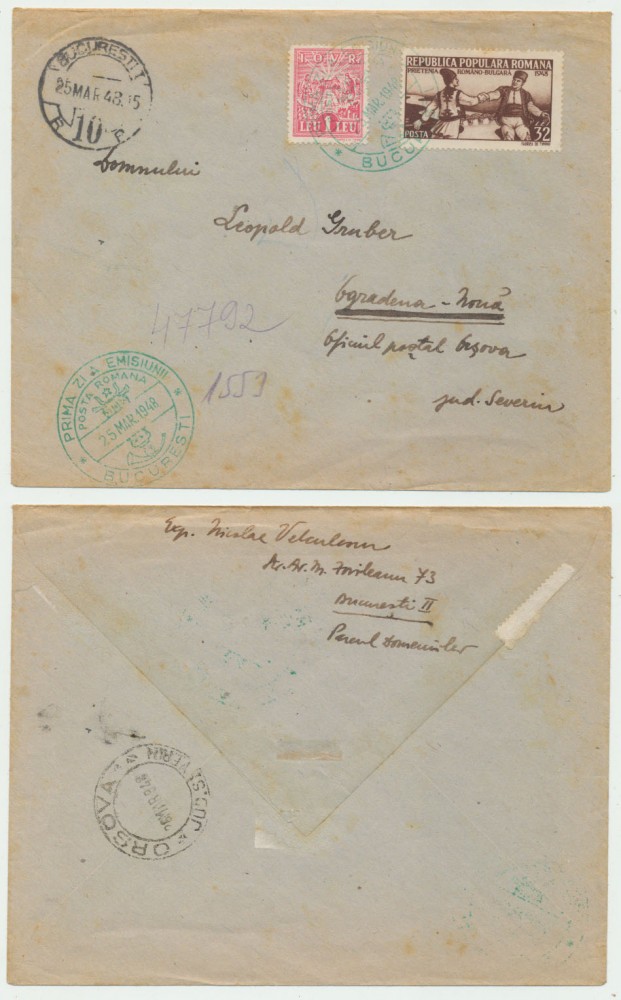 BUCUREȘTI 1
25 MAR 48. 15
10
I.O.V.R.
LEU 1 LEU
REPUBLICA POPULARA ROMANA
PRIETENIA ROMÂNO-BULGARĂ 1948
POSTA 32
25 MAR. 1948
BUCUREȘTI
Domnului
Leopold Gruber
Ogradena - Nouă
Oficiul poștal Orșova
jud. Severin
47792
1553
PRIMA ZI A EMISIUNII
POSTA ROMANA
25 MAR. 1948
BUCUREȘTI
Exp. Nicolae
73
București II
Parcul Domeniilor
ORȘOVA
JUD. SEVERIN